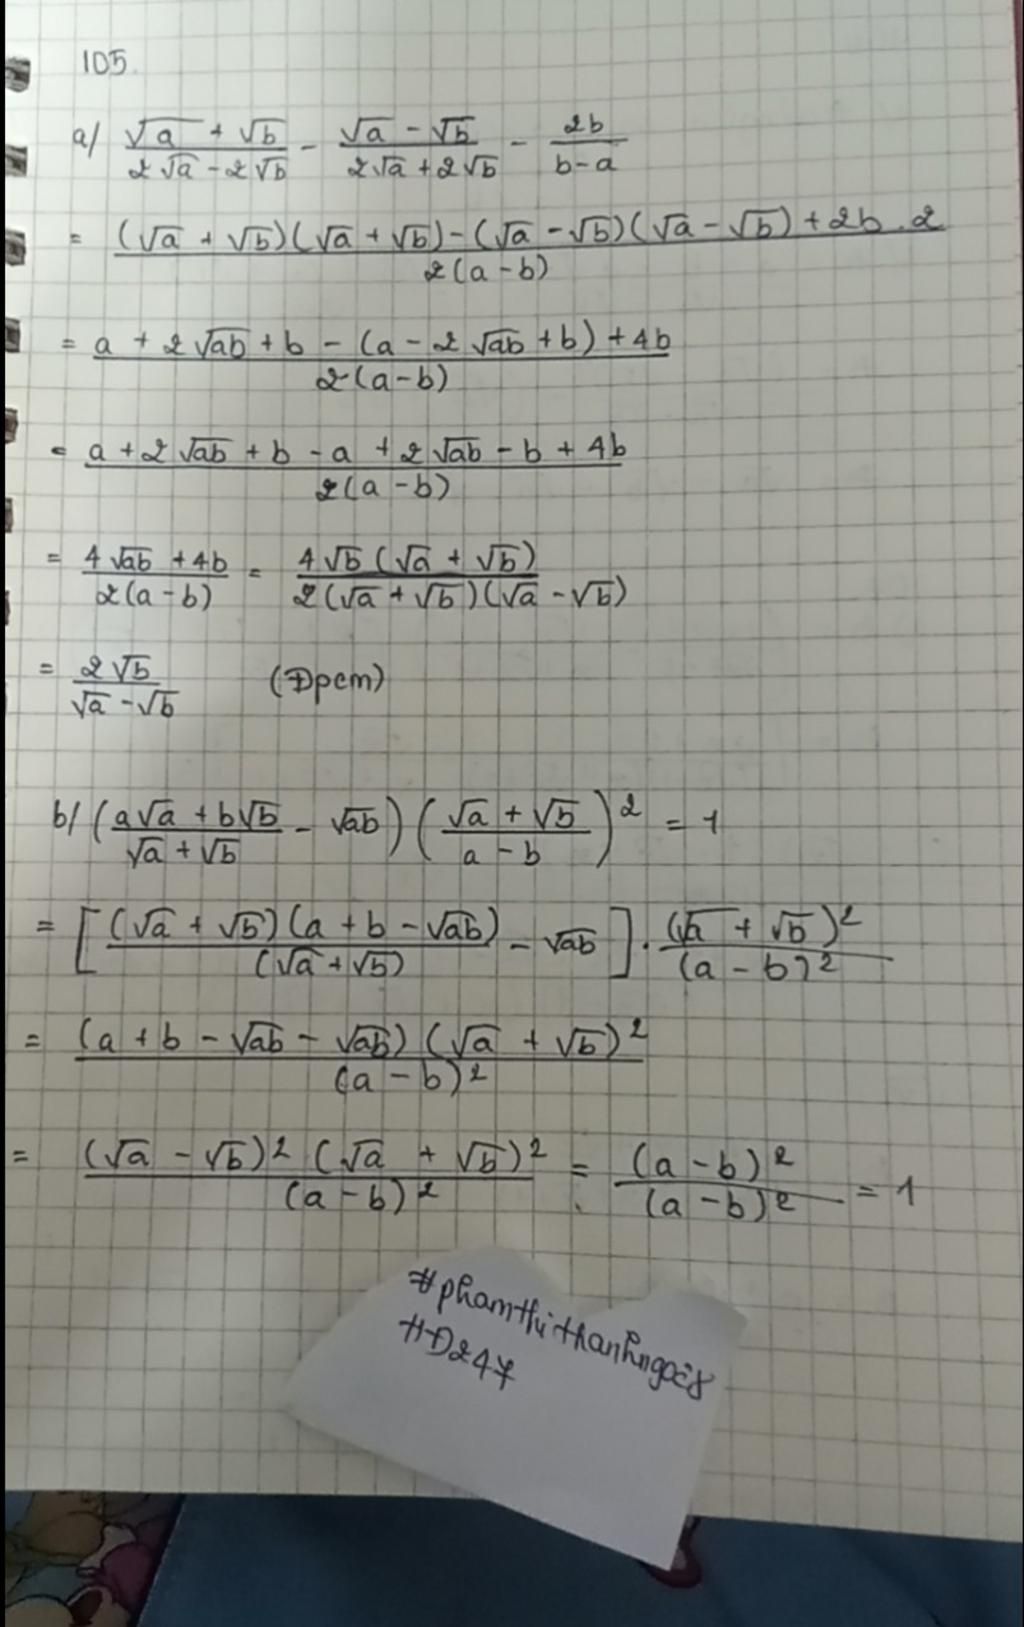 105.
a/ (√a + √b)/(2√a - 2√b) - (√a - √b)/(2√a + 2√b) - 2b/(b-a)
= ((√a + √b)(√a + √b) - (√a - √b)(√a - √b) + 2b.2)/(2(a-b))
= (a + 2√ab + b - (a - 2√ab + b) + 4b)/(2(a-b))
= (a + 2√ab + b - a + 2√ab - b + 4b)/(2(a-b))
= (4√ab + 4b)/(2(a-b)) = (4√b(√a + √b))/(2(√a + √b)(√a - √b))
= 2√b/(√a - √b) (Đpcm)
b/ ((a√a + b√b)/(√a + √b) - √ab)((√a + √b)/(a - b))² = 1
= [((√a + √b)(a + b - √ab))/(√a + √b) - √ab] . (√a + √b)²/(a - b)²
= ((a + b - √ab - √ab)(√a + √b)²)/(a - b)²
= ((√a - √b)²(√a + √b)²)/(a - b)² = (a - b)²/(a - b)² = 1
#phamthithanhngoc8
HĐ247